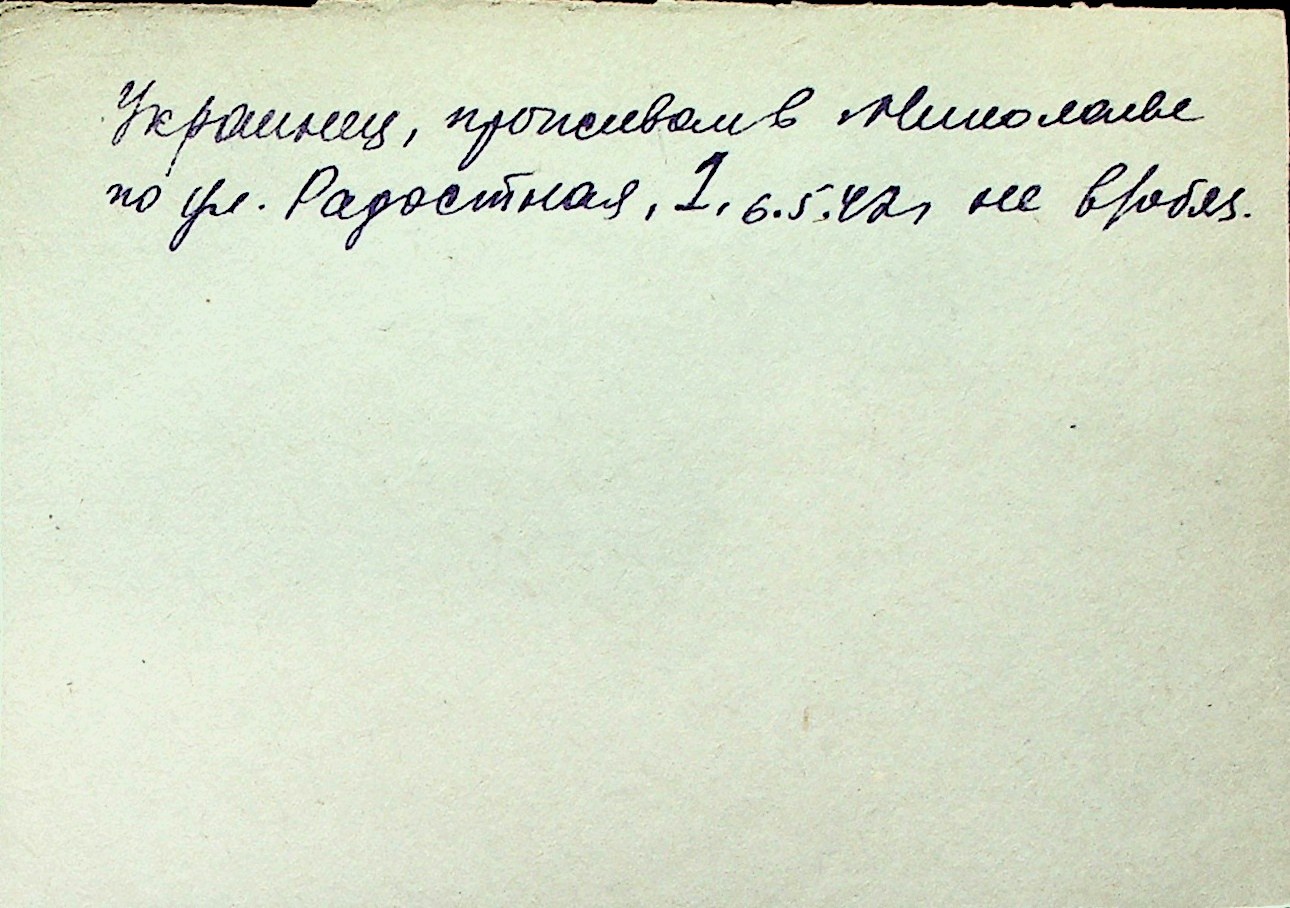 Украинец, проживал в Николаеве
по ул. Радостная, 1, 6.5.42, не